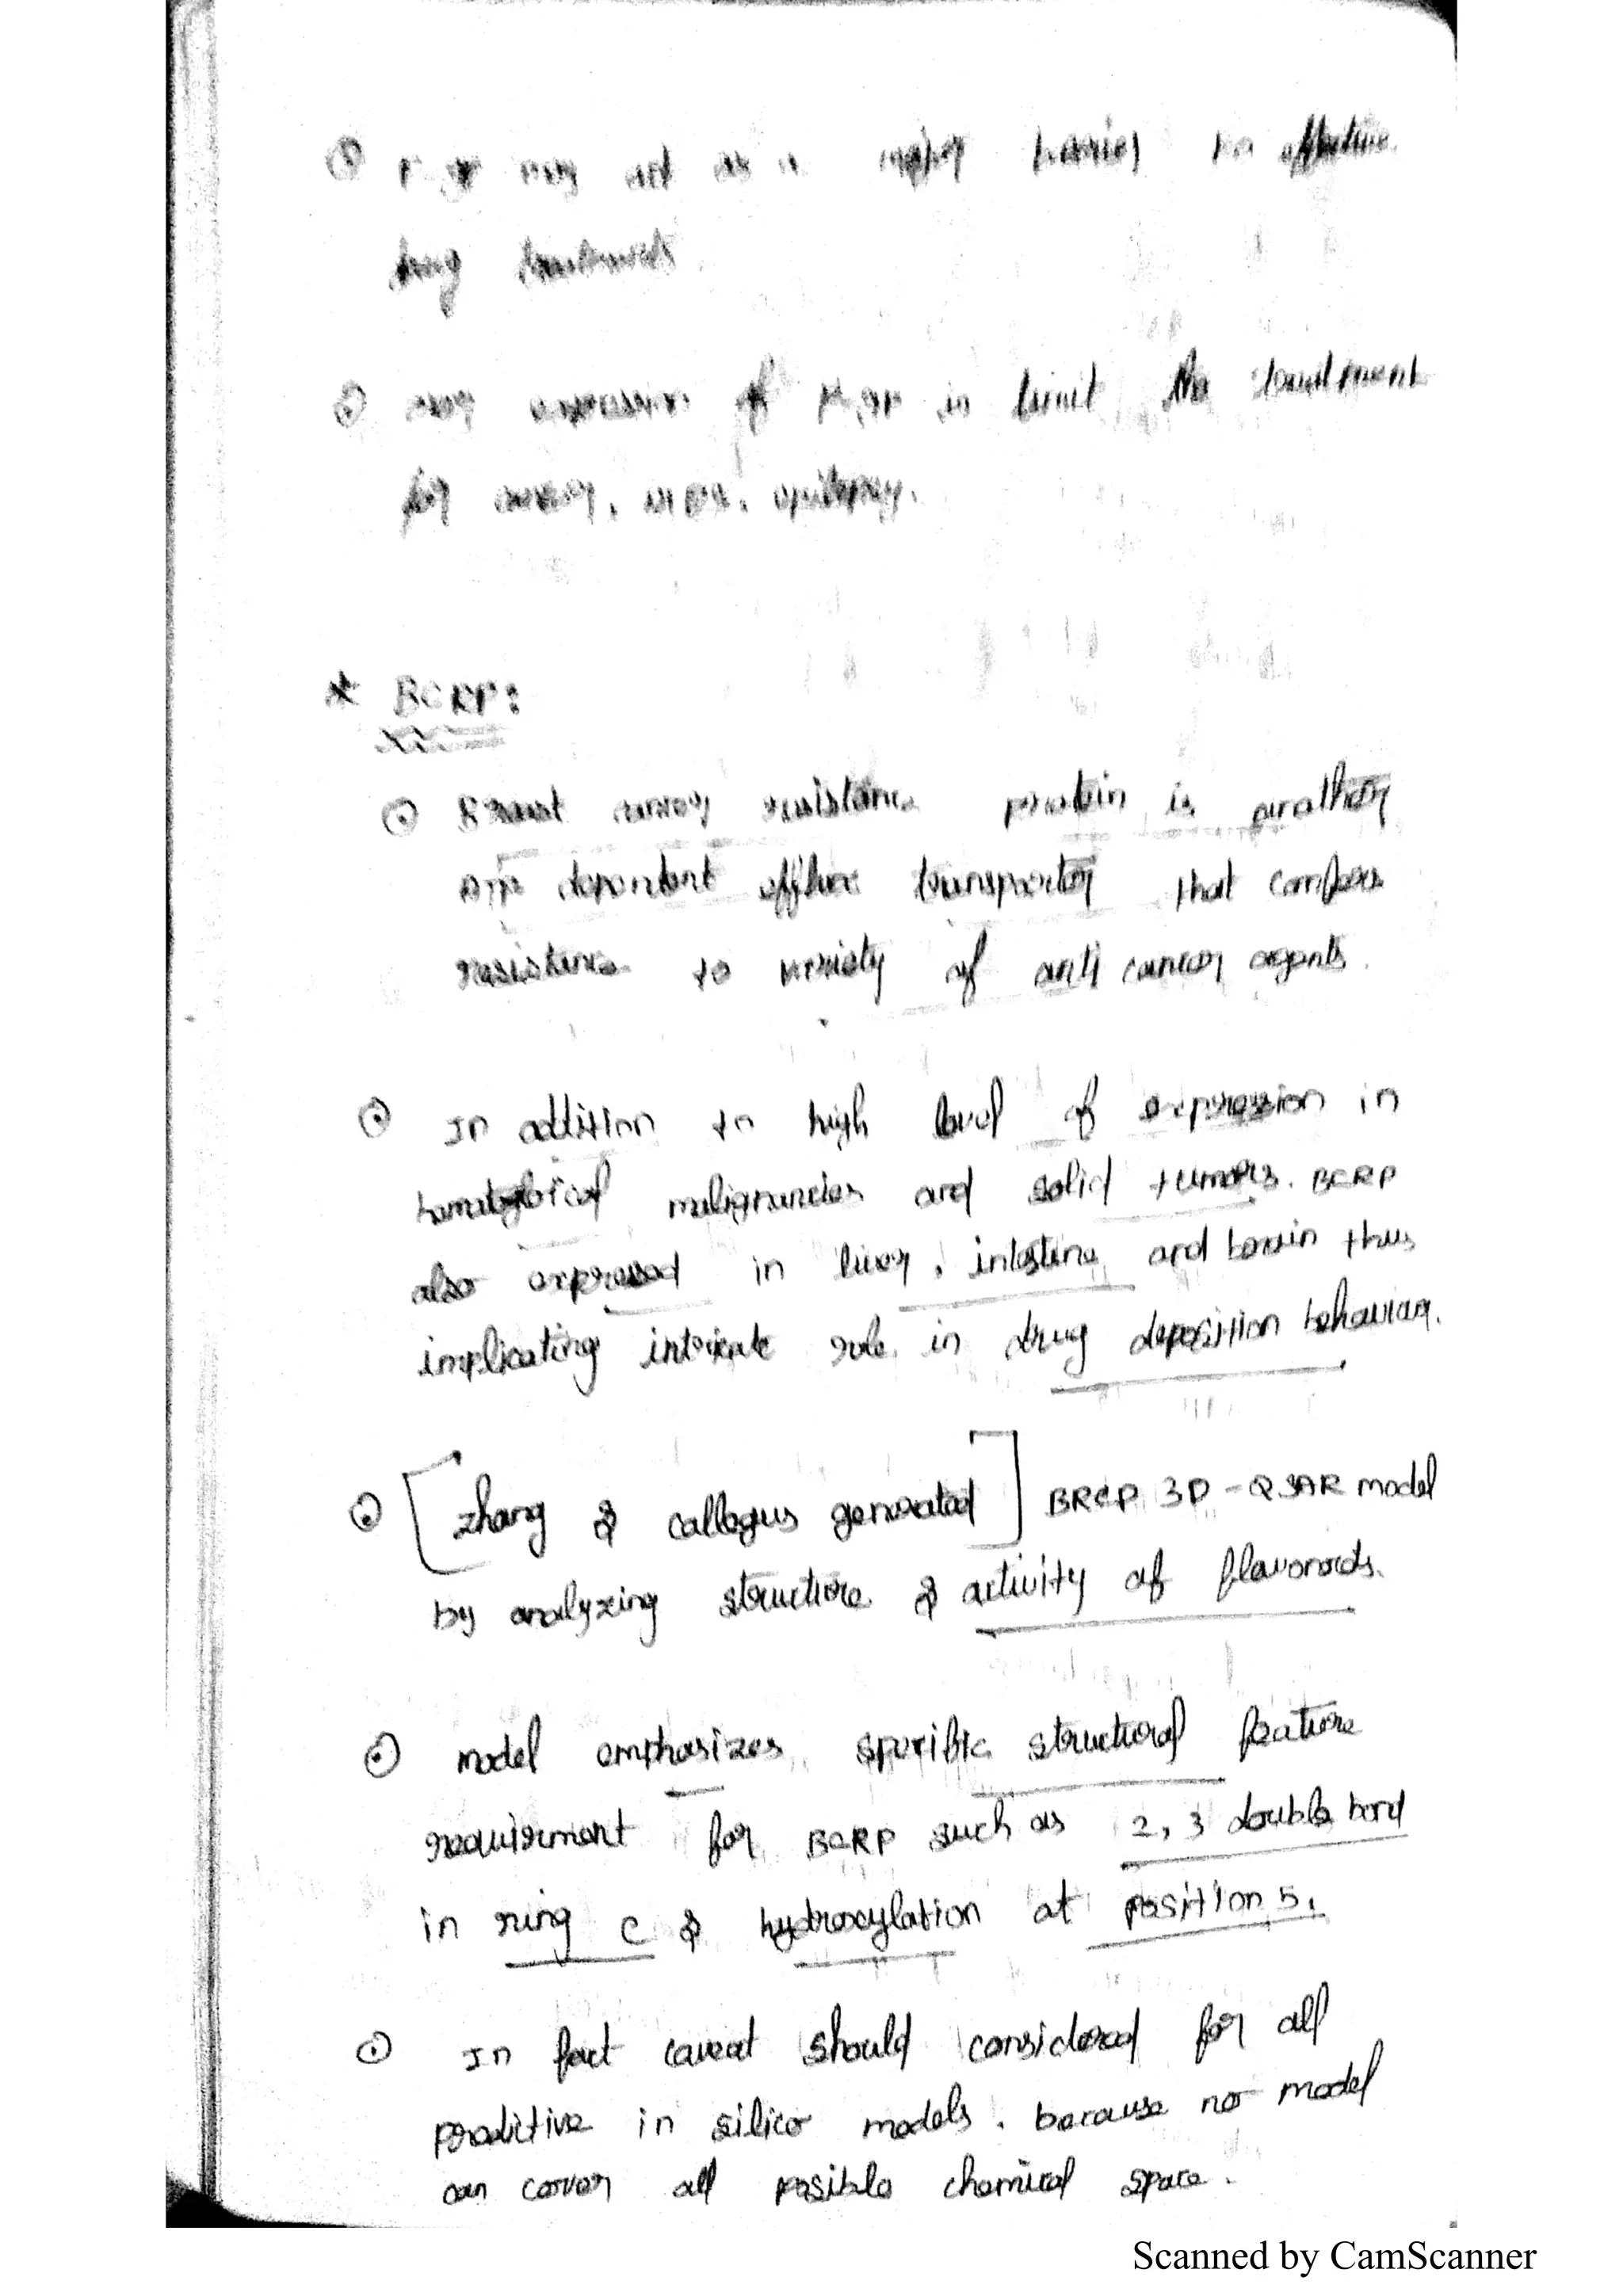 may act as a major barrier to effective
drug treatments
expression of in limit the treatment
for cancer, epilepsy.
* BCRP:
Breast cancer resistance protein is another
ATP dependent efflux transporter that confers
resistance to variety of anti cancer agents.
In addition to high level of expression in
malignancies and solid tumors. BCRP
also expressed in liver, intestine and brain thus
implicating intricate role in drug deposition behaviour.
[zhang & callegus generated] BRCP 3D-QSAR model
by analyzing structure & activity of flavonoids.
model emphasizes specific structural feature
requirment for BCRP such as 2, 3 double bond
in ring C & hydroxylation at position 5.
In fact caveat should considered for all
preditive in silico models. because no model
can cover all possible chemical space.
Scanned by CamScanner